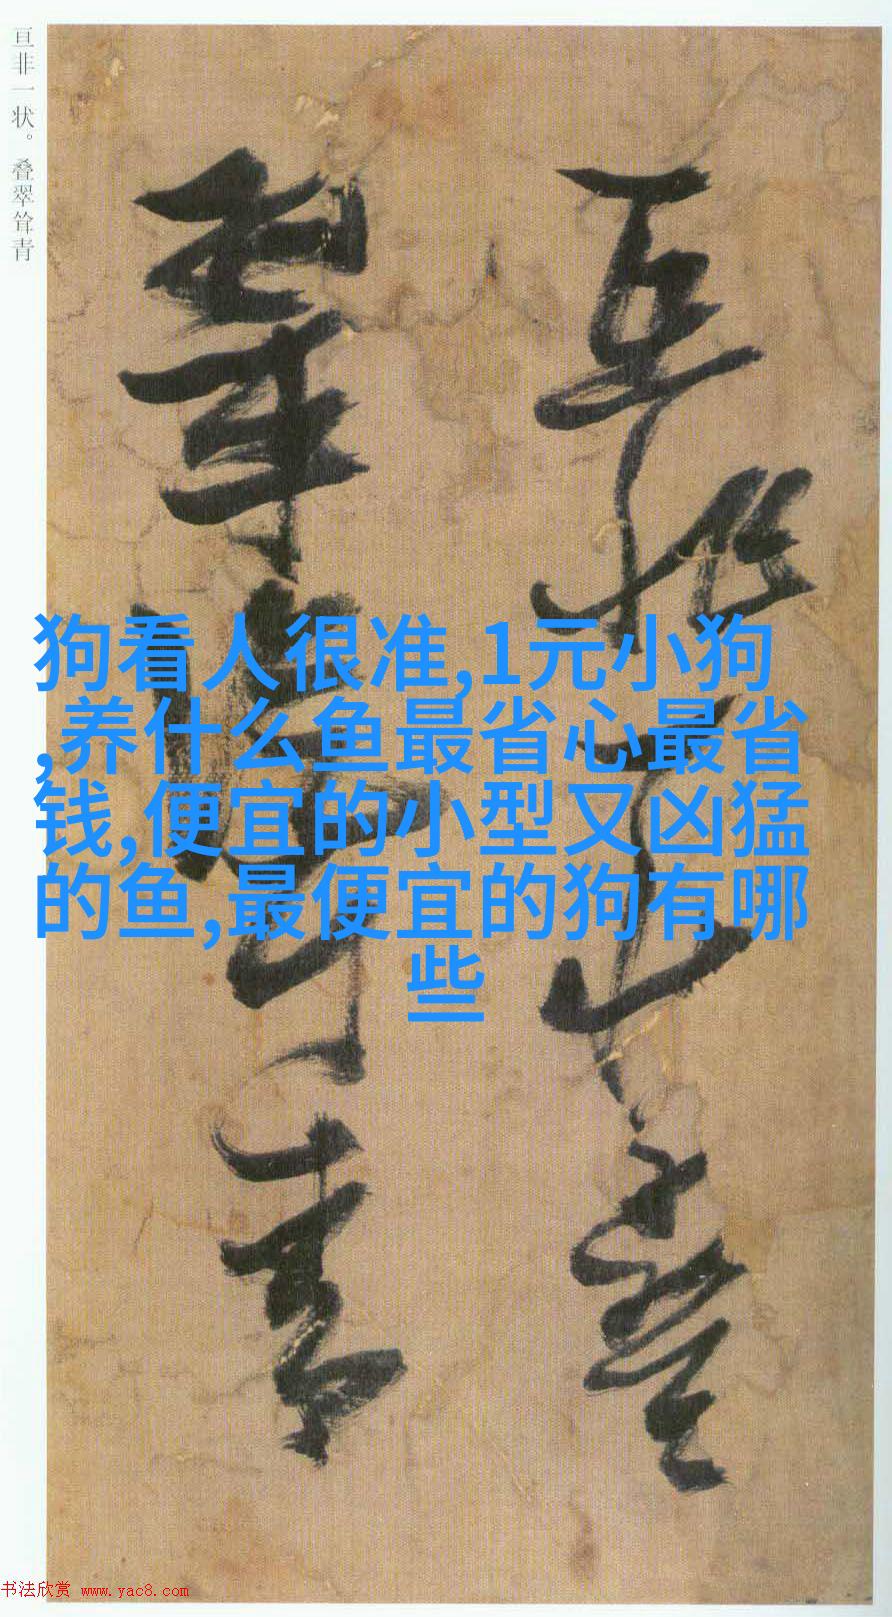 亘非一状。叠翠耸青
亘非一状
叠翠耸青
狗看人很准,1元小狗
,养什么鱼最省心最省
钱,便宜的小型又凶猛
的鱼,最便宜的狗有哪
些
书法欣赏 www.yac8.com